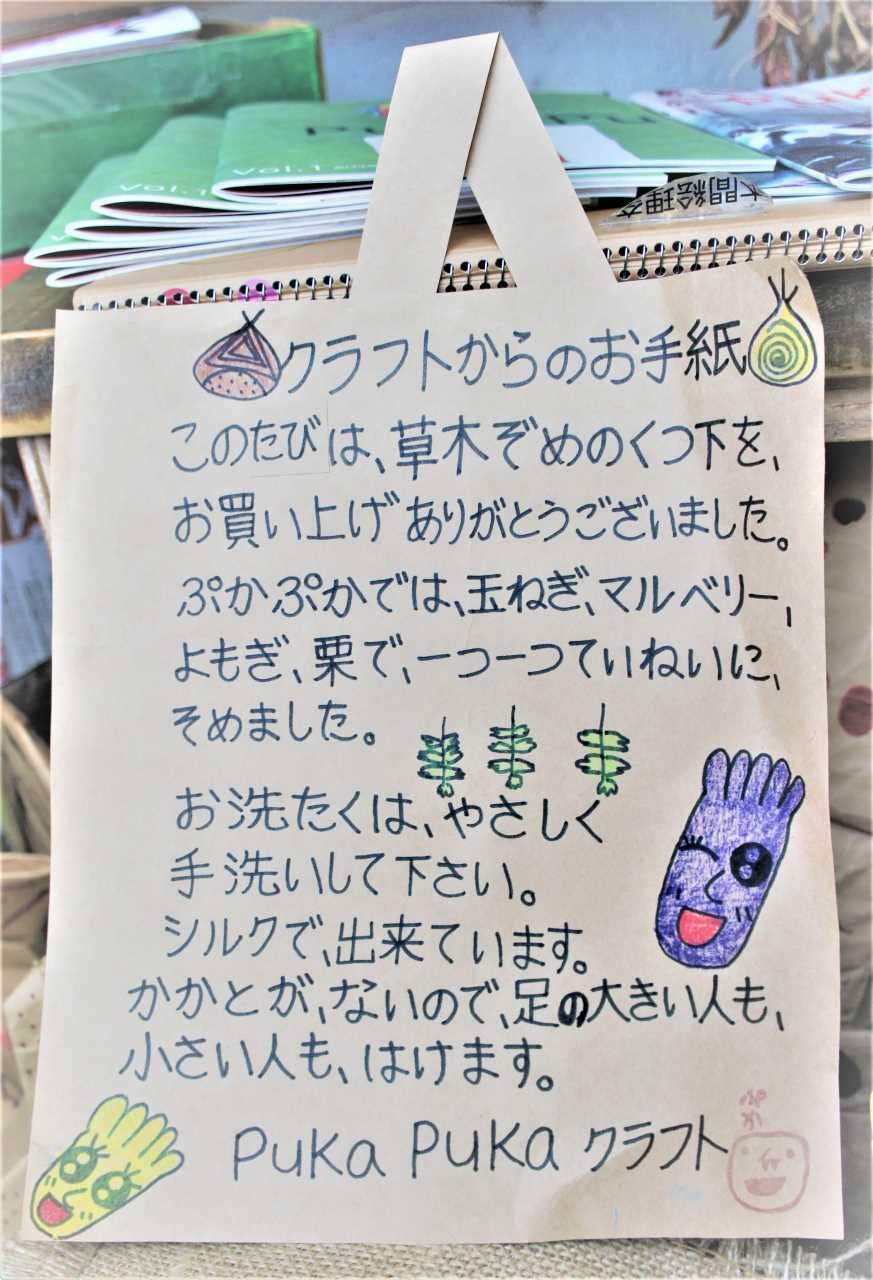 vol.1
vol.1
vol.1
クラフトからのお手紙
このたびは、草木ぞめのくつ下を、
お買い上げありがとうございました。
ぷかぷかでは、玉ねぎ、マルベリー、
よもぎ、栗で、一つ一つていねいに、
そめました。
お洗たくは、やさしく
手洗いして下さい。
シルクで、出来ています。
かかとが、ないので、足の大きい人も、
小さい人も、はけます。
PUKA PUKA クラフト